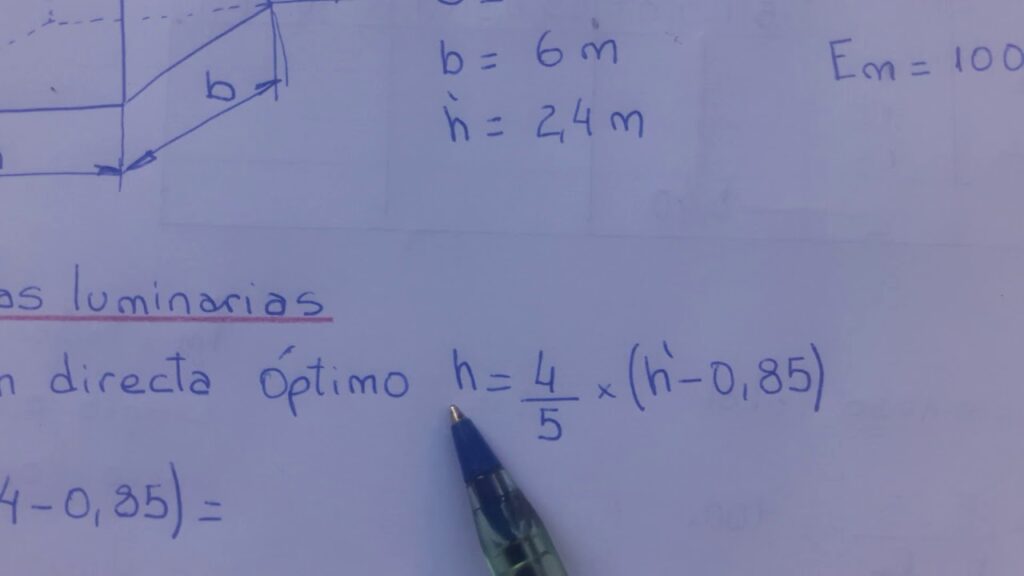 b = 6 m
Em = 100
h' = 2,4 m
b
os luminarias
n directa Óptimo h = 4/5 × (h' - 0,85)
4 - 0,85) =